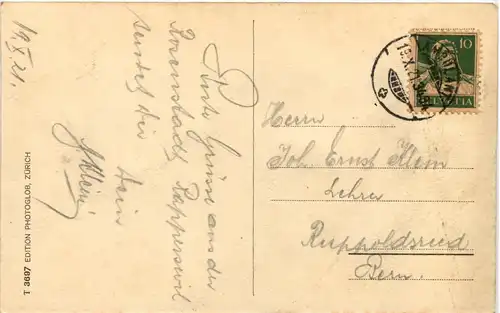 19.X.21.
Gruss aus der
Rosenstadt Rapperswil
sendet Dir
Dein
J. Klein
T 3697 EDITION PHOTOGLOB, ZÜRICH
10
HELVETIA
Herrn
Joh. Ernst Klein
Lehrer
Ruppoldsried
Bern.